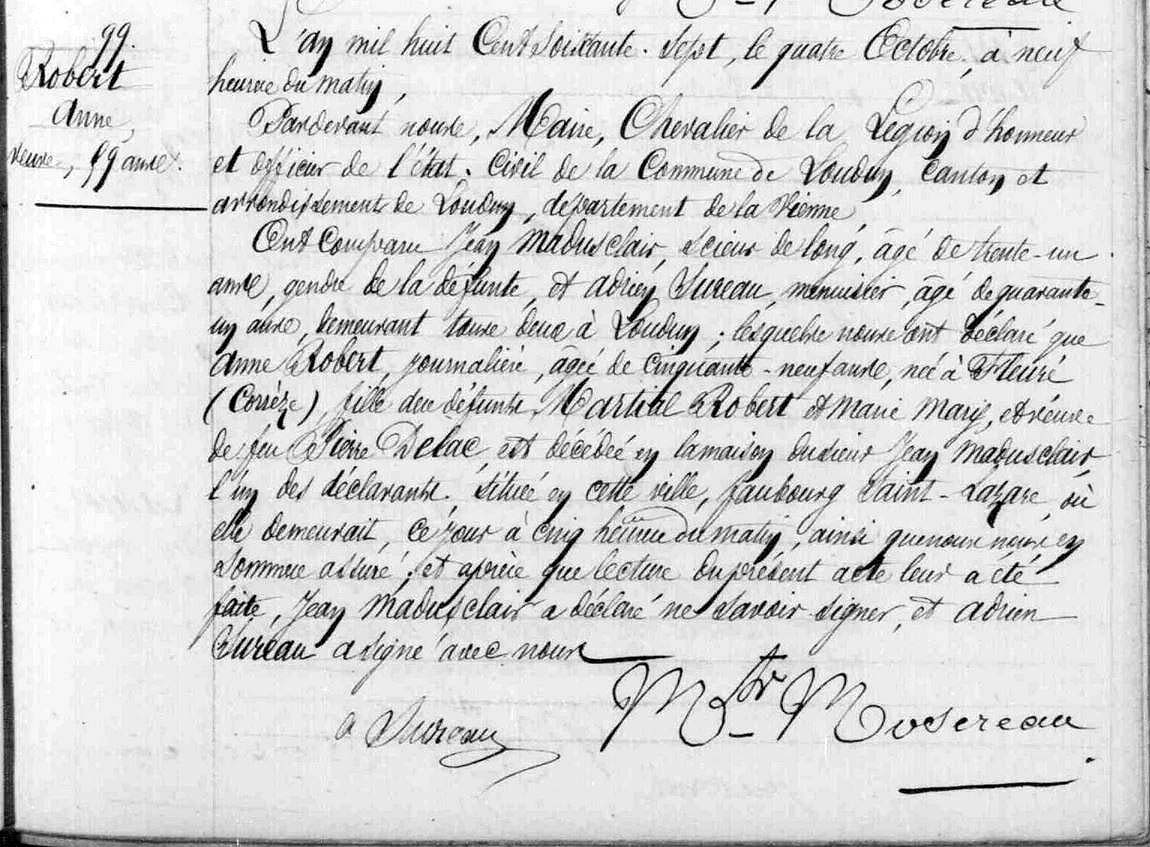 99
Robert
Anne,
veuve, 59 ans.
L'an mil huit Cent Soixante-Sept, le quatre Octobre, à neuf
heures du matin,
Pardevant nous, Maire, Chevalier de la Légion d'honneur
et officier de l'état-Civil de la Commune de Loudun, Canton et
arrondissement de Loudun, département de la Vienne
Ont Comparu Jean Madusclair, Scieur de long, âgé de trente-un
ans, gendre de la défunte, et Adrien Sureau, menuisier, âgé de quarante-
un ans, demeurant tous deux à Loudun; lesquels nous ont déclaré que
Anne Robert, journalière, âgée de cinquante-neuf ans, née à
(Corrèze), fille des défunts Martial Robert et Marie Mary, et veuve
de feu Pierre Delac, est décédée en la maison du sieur Jean Madusclair
l'un des déclarants. Située en cette ville, faubourg Saint-Lazare, où
elle demeurait, ce jour à cinq heures du matin, ainsi que nous nous en
Sommes assuré; et après que lecture du présent acte leur a été
faite, Jean Madusclair a déclaré ne Savoir Signer, et Adrien
Sureau a signé avec nous
a Sureau